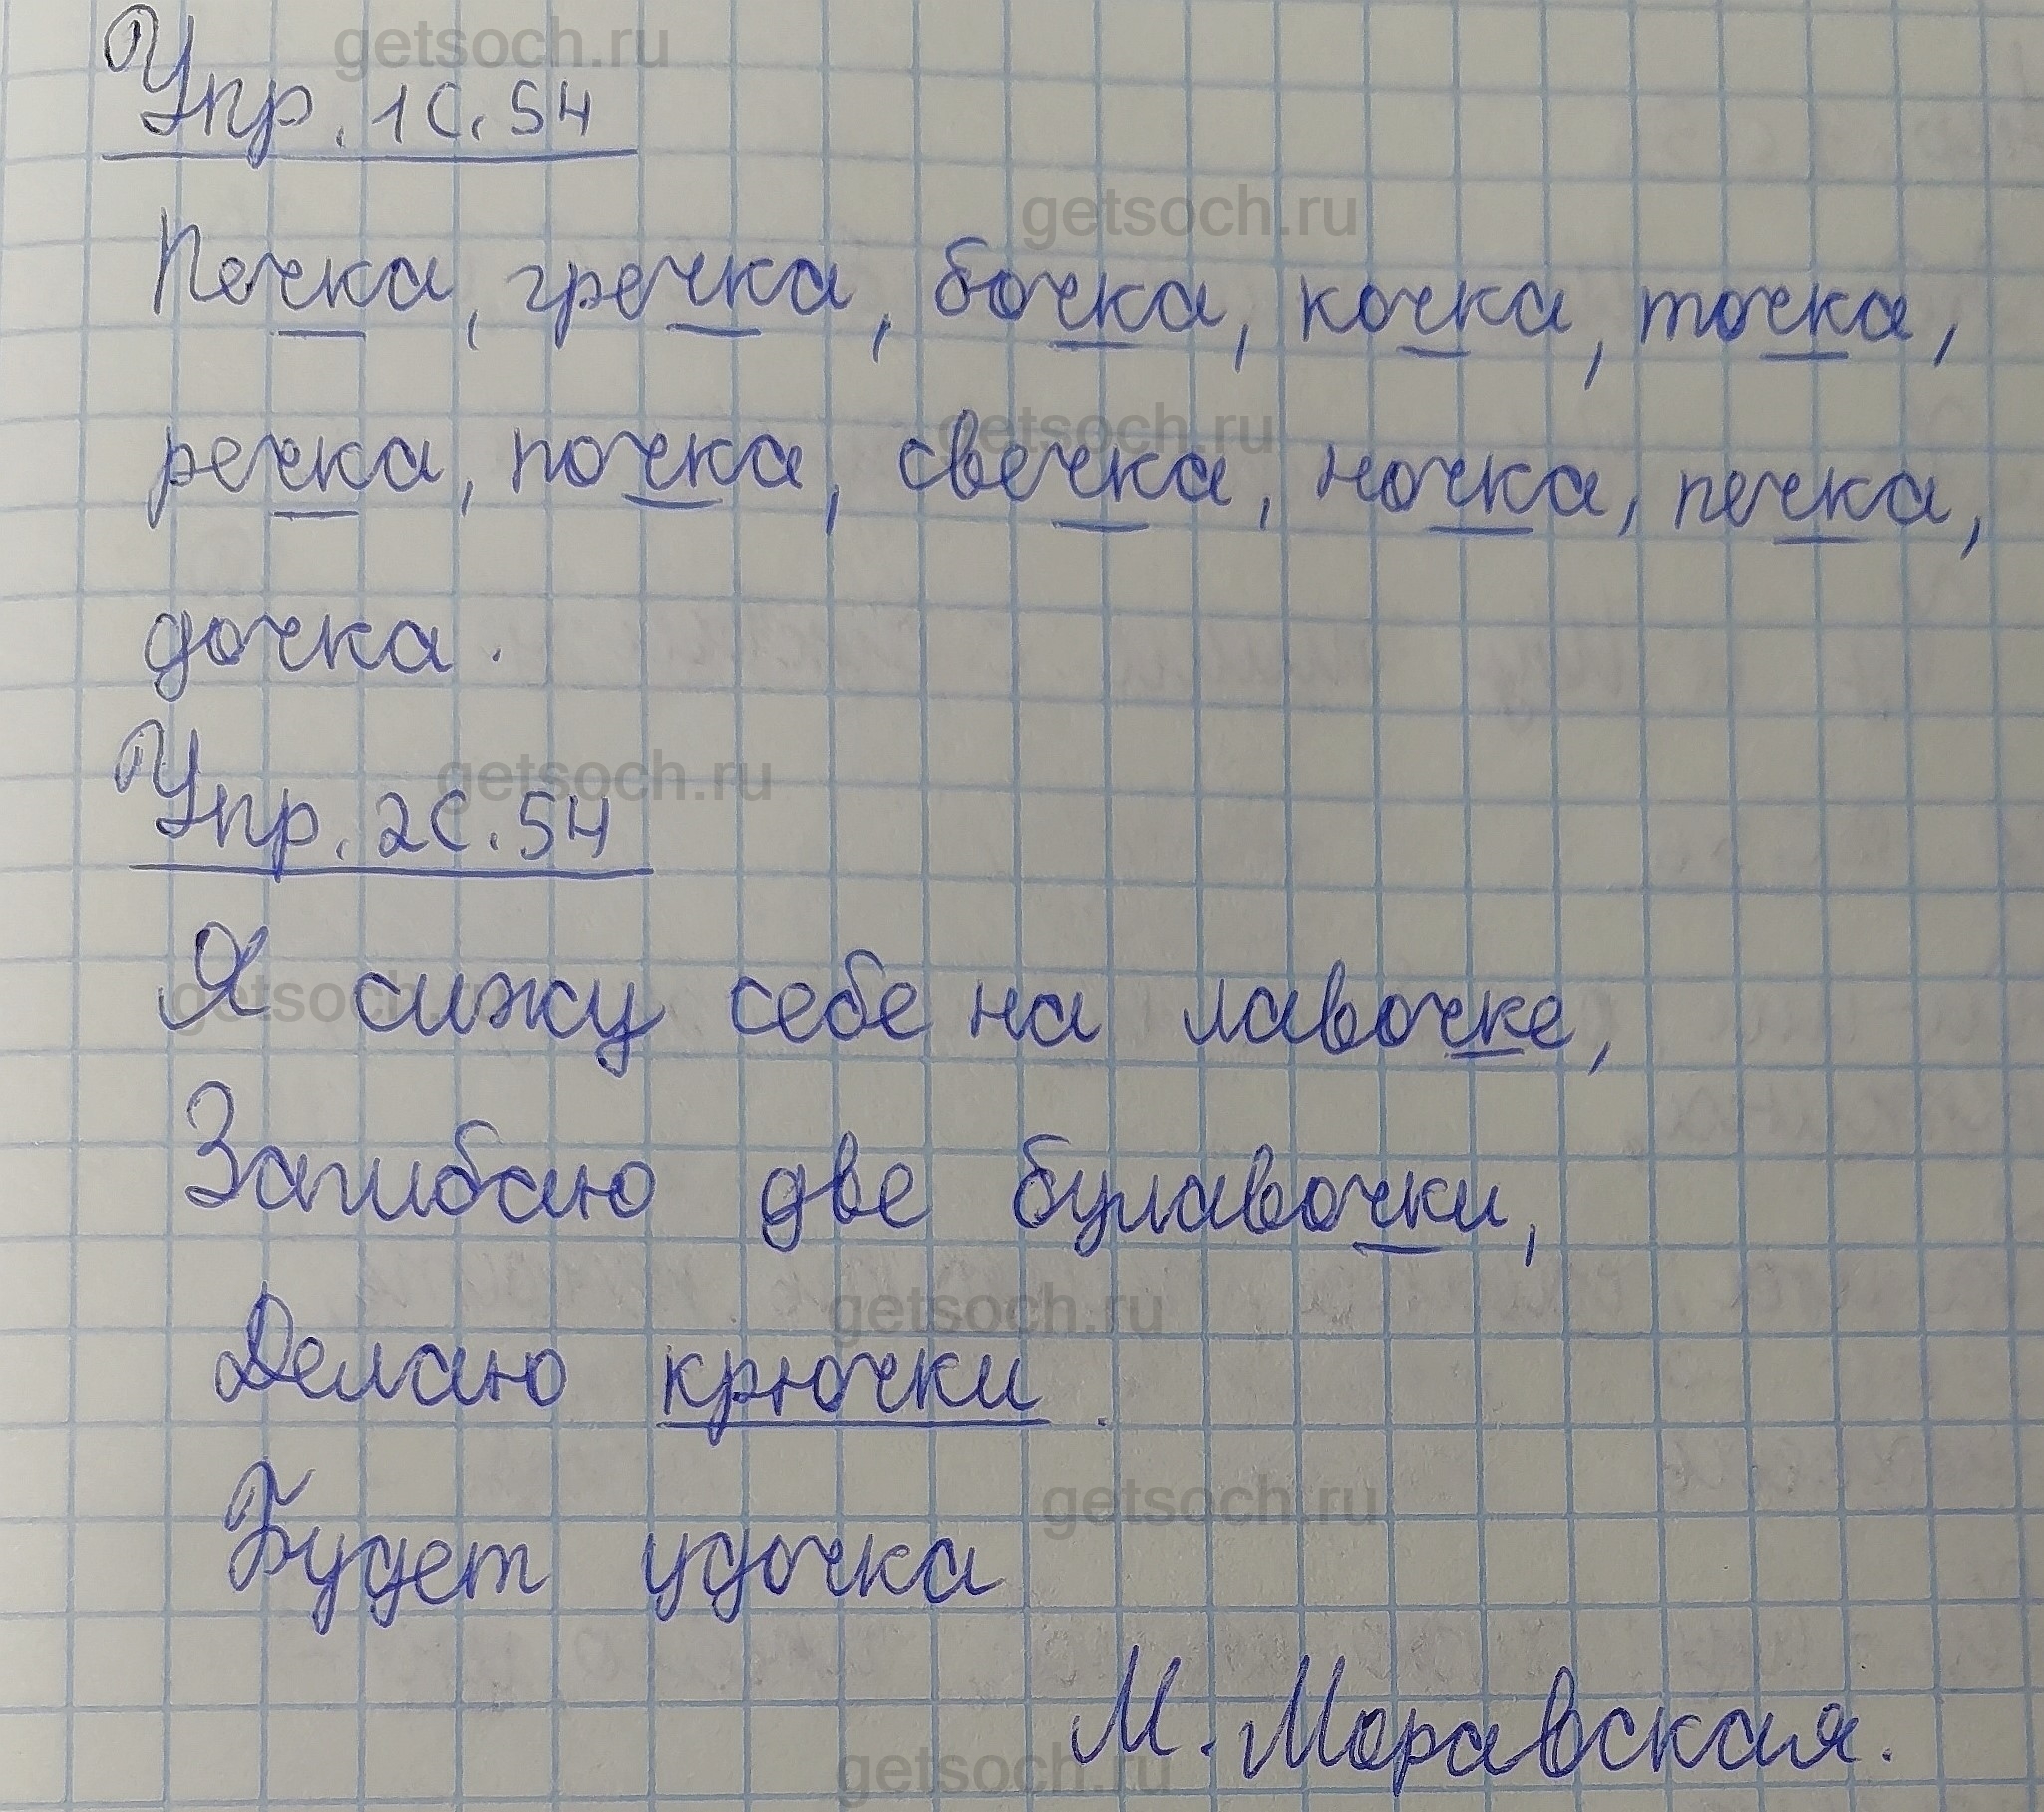 getsoch.ru
Упр. 1 С. 54
getsoch.ru
Печка, гречка, бочка, кочка, точка,
getsoch.ru
речка, почка, свечка, ночка, печка,
дочка.
getsoch.ru
Упр. 2 С. 54
getsoch.ru
Я сижу себе на лавочке,
Загибаю две булавочки,
getsoch.ru
Делаю крючки.
getsoch.ru
Будет удочка
М. Моравская.
getsoch.ru